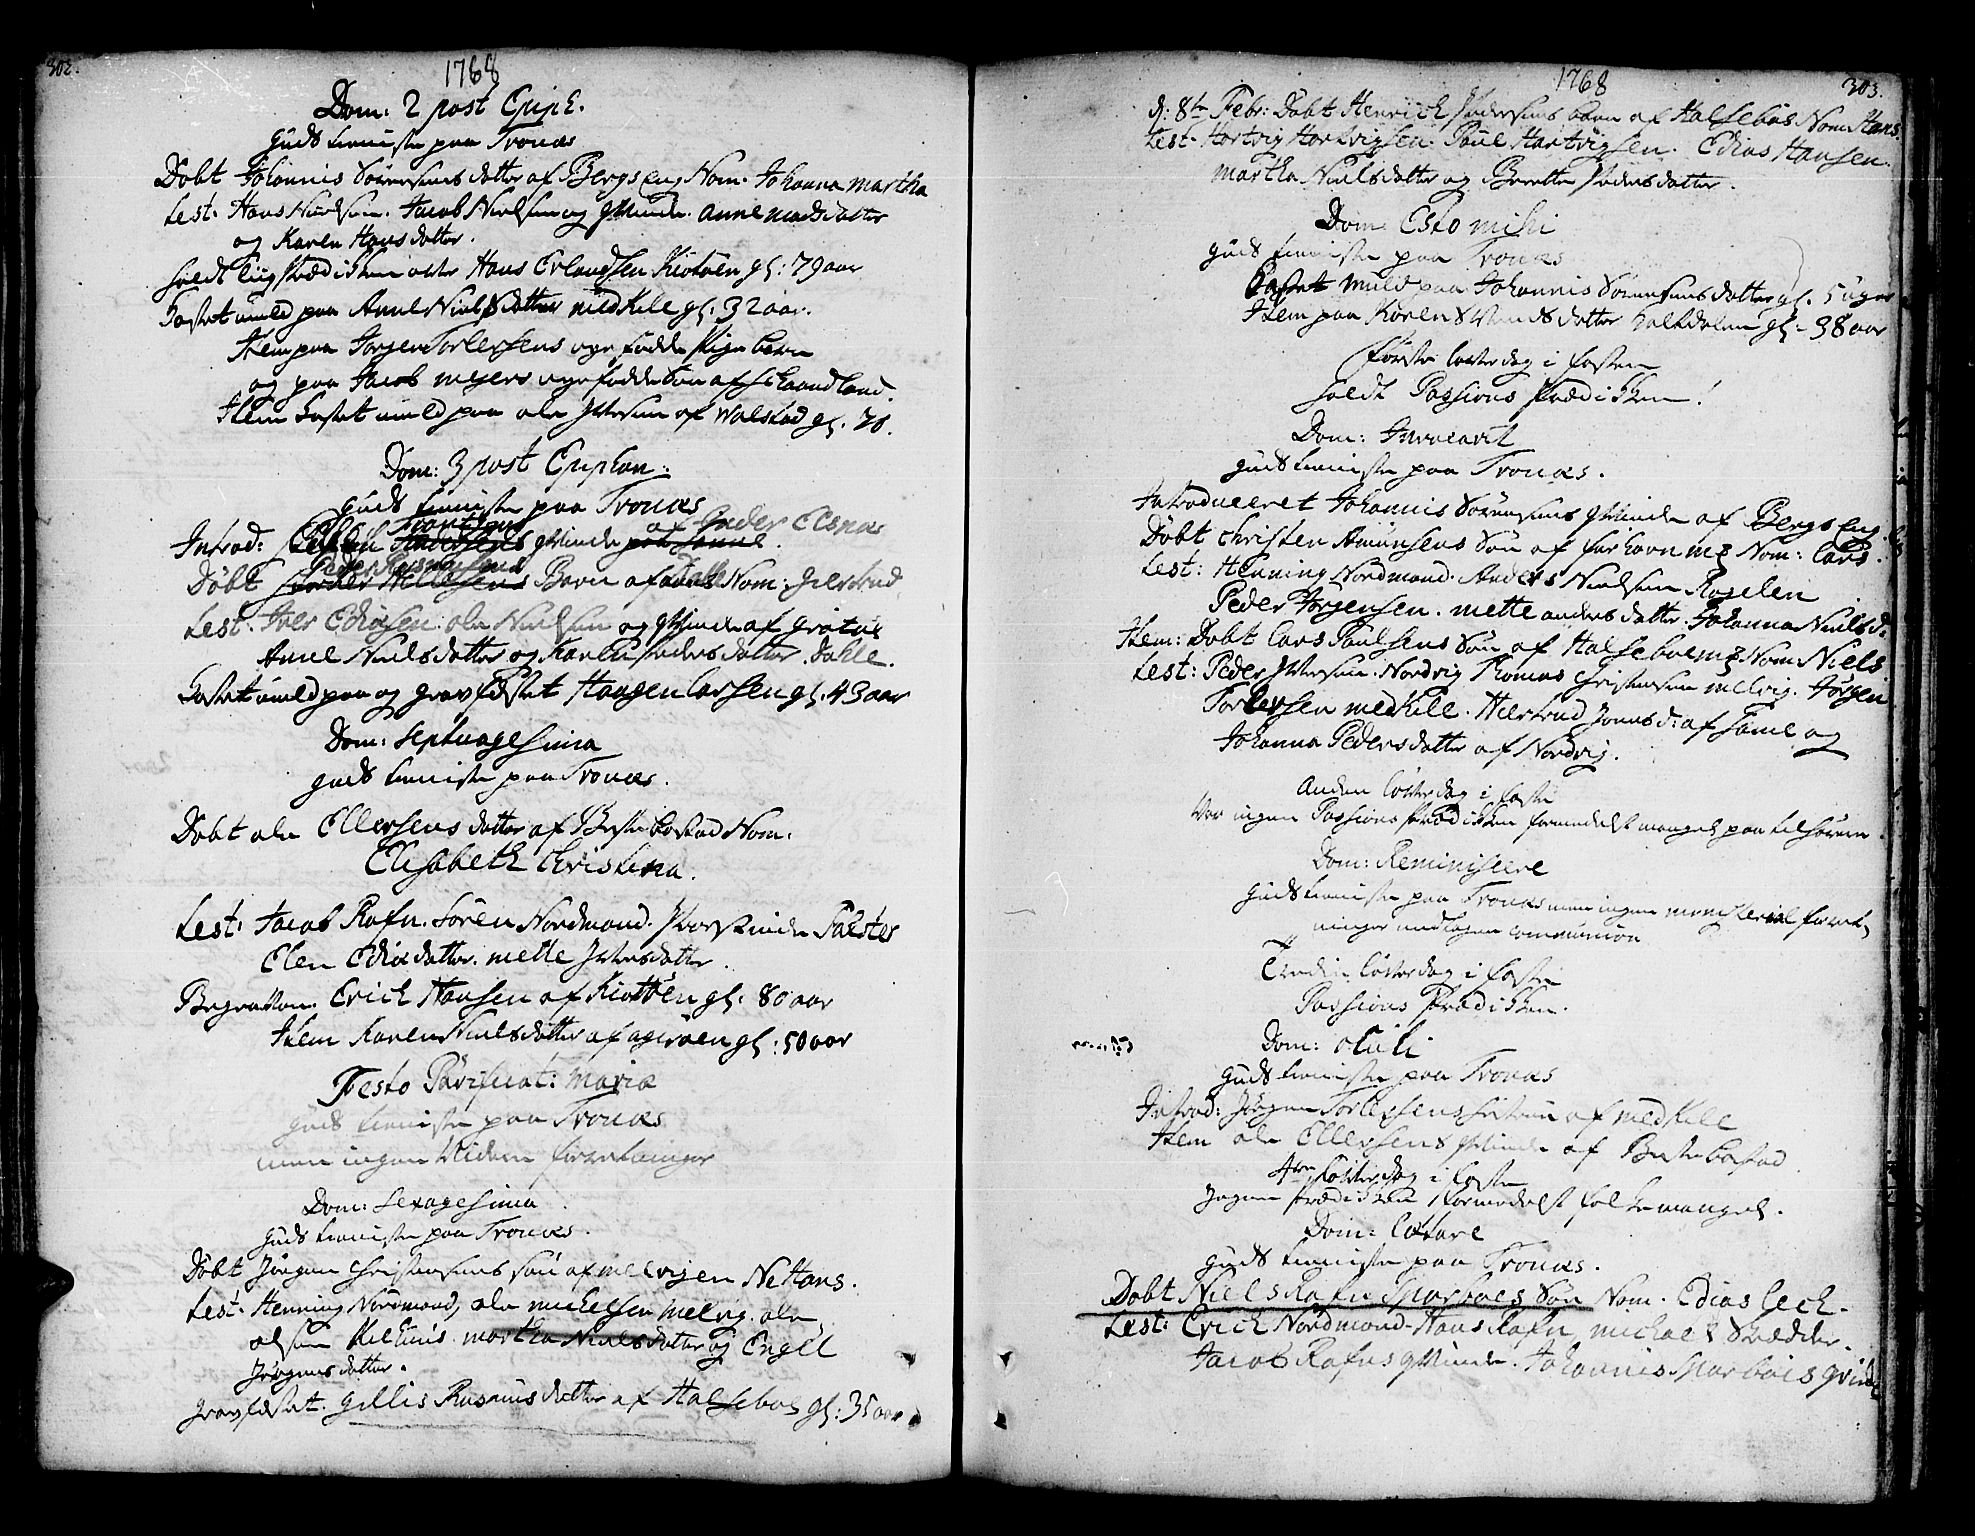 302.
1768
Dom: 2 post Epiph.
Guds tieniste paa Tronæs
Døbt Johannis Sørensens datter af Bergs eng Nom. Johanna Martha
Test. Hans Nielsen. Jacob Nielsen og qvinde. Anne Madsdatter
og Karen Hansdatter.
Holdt liig prædicken over Hans Erlandsen Kiotøen gl: 79 aar
Castet muld paa Anne Nielsdatter Medkile gl. 32 aar.
Item paa Jørgen Torlersens nyefødde Pige barn
og paa Jacob Meyers nyefødde Søn af
Item Castet muld paa Ole Iversen af Wolstad gl. 70.
Dom: 3 post Epiphan:
Guds tieniste paa Tronæs
Introd: qvinde af Elgnæs
Døbt Peder Rasmussens Barn af Nom: Giertrud
Test. Iver Ediasen. Ole Nielsen og qvinde af Grøtnæs
Anne Nielsdatter og Karen Pedersdatter. Dahle.
Castet muld paa og gravfæstet Haagen Larsen gl. 43 aar
Dom: Septuagesima
Guds tieniste paa Tronæs.
Døbt Ole Ellersens datter af Bestebostad Nom:
Elisabeth Christina.
Test. Jacob Rafn. Søren Nordmand. Falster
Elen Ediædatter. Mette Iversdatter.
Begraven. Erich Hansen af Kiottøen gl. 80 aar
Item Karen Nielsdatter af agerøen gl: 50 aar
Festo Purificat: Mariæ
Guds tieniste paa Tronæs
men ingen videre forretninger
Dom: Sexagesima
Guds tieniste paa Tronæs.
Døbt Jørgen Christensens søn af Melvigen N: Hans.
Test. Henning Nordmand, Ole Michelsen Melvig. Ole
Olsen Kilhuus. Martha Nielsdatter og Engel
Jørgensdatter.
Gravfæstet. Gillis Rasmusdatter af Halsebøe gl: 35 aar
1768
303.
d: 8te Febr: Døbt Henrich Pedersens barn af Halsebøs Nom Hans.
Test. Hartvig Hartvigsen. Paul Hartvigsen. Edias Hansen.
Martha Nielsdatter og Berette Pedersdatter.
Dom Esto mihi
Guds tieniste paa Tronæs
Castet muld paa Johannis Sørensens datter gl. 5 uger
Item paa Karen datter gl. 38 aar
Første løverdag i fasten
holdt Passions Prædicken!
Dom: Invocavit
Guds tieniste paa Tronæs.
Introduceret Johannis Sørensens qvinde af Bergs eng.
Døbt Christen Amunsens søn af Nom: Lars.
Test: Henning Nordmand. Anders Nielsen Rogelen
Peder Jørgensen. Mette Andersdatter. Johanna Nielsd:
Item: Døbt Lars Paulsens søn af Halsebøe Nom Niels
Test: Peder Iversen. Nordvig Thomas Christensen Melvig. Jørgen
Torlersen Medkile. Giertrud Jonasd: af Same og
Johanna Pedersdatter af Nordvig.
Anden løverdag i faste
Var ingen Passions Prædicken formedelst mangel paa tilhørere.
Dom: Reminiscere
Guds tieniste paa Tronæs men ingen ministerial forret-
ninger undtagen Communion
Tredie løverdag i fasten
Passions Prædicken.
Dom: Oculi
Guds tieniste paa Tronæs
Introd: Jørgen Torlersens hustrue af Medkile
Item Ole Ellersens qvinde af Bestebostad.
4de løverdag i fasten
Ingen Prædicken formedelst folkemangel.
Dom: Lætare
Guds tieniste paa Tronæs.
Døbt Niels Rafn Sparboes Søn Nom. Edias Lech.
Test: Erich Nordmand. Hans Rafn, Michael Skrædder.
Jacob Rafns qvinde. Johannis Sparboes qvinde